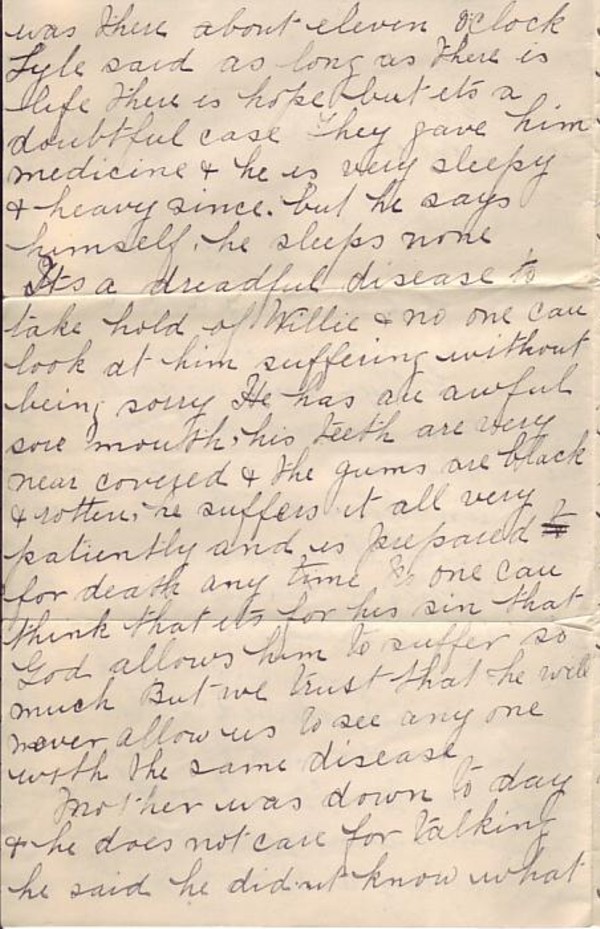 was there about eleven O'Clock
Lyle said as long as there is
life there is hope but its a
doubtful case They gave him
medicine & he is very sleepy
& heavy since. but he says
himself, he sleeps none
Its a dreadful disease to
take hold of Willie & no one can
look at him suffering without
being sorry He has an awful
sore mouth, his teeth are very
near covered & the gums are black
& rotten, he suffers it all very
patiently and is prepared
for death any time No one can
think that its for his sin that
God allows him to suffer so
much But we trust that he will
never allow us to see any one
with the same disease
Mother was down to day
& he does not care for talking
he said he didnt know what